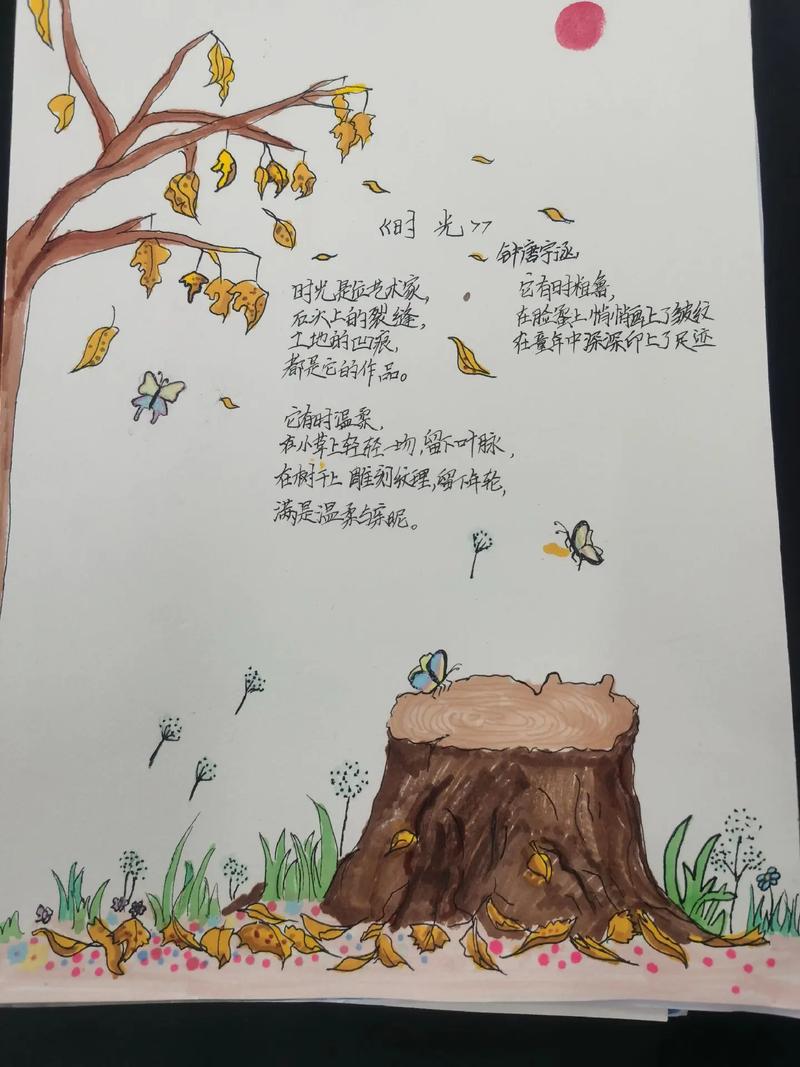 《时光》
钟唐宇涵
时光是位艺术家,
石头上的裂缝,
土地的凹痕,
都是它的作品。
它有时温柔,
在小草上轻轻一吻,留下叶脉,
在树干上雕刻纹理,留下年轮,
满是温柔与亲昵。
它有时粗鲁,
在脸蛋上悄悄画上了皱纹
在童年中深深印上了足迹